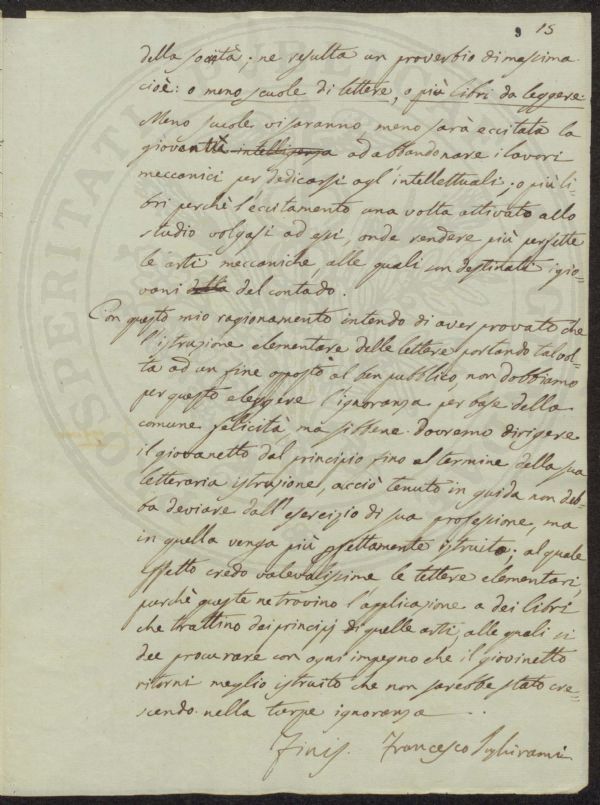 9 15
della società; ne resulta un proverbio di massima
cioè: o meno scuole di lettere, o più libri da leggere.
Meno scuole vi saranno, meno sarà eccitata la
gioventù intelligenza ad abbandonare i lavori
meccanici per dedicarsi agl'intellettuali; o più li=
bri perchè l'eccitamento una volta attivato allo
studio volgasi ad essi, onde rendere più perfette
le arti meccaniche, alle quali son destinati i gio=
vani della del contado.
Con questo mio ragionamento intendo di aver provato che
l'istruzione elementare delle lettere portando talvol=
ta ad un fine opposto al ben pubblico, non dobbiamo
per questo eleggere l'ignoranza per base della
comune felicità ma sibbene dovremo dirigere
il giovanetto dal principio fino al termine della sua
letteraria istruzione, acciò tenuto in guida non deb=
ba deviare dall'esercizio di sua professione, ma
in quella venga più esattamente istruito; al quale
effetto credo valevolissime le lettere elementari,
purchè queste ne trovino l'applicazione a dei libri
che trattino dei principj di quelle arti, alle quali si
dee procurare con ogni impegno che il giovinetto
ritorni meglio istruito che non sarebbe stato cre=
scendo nella turpe ignoranza
Finis. Francesco Inghirami